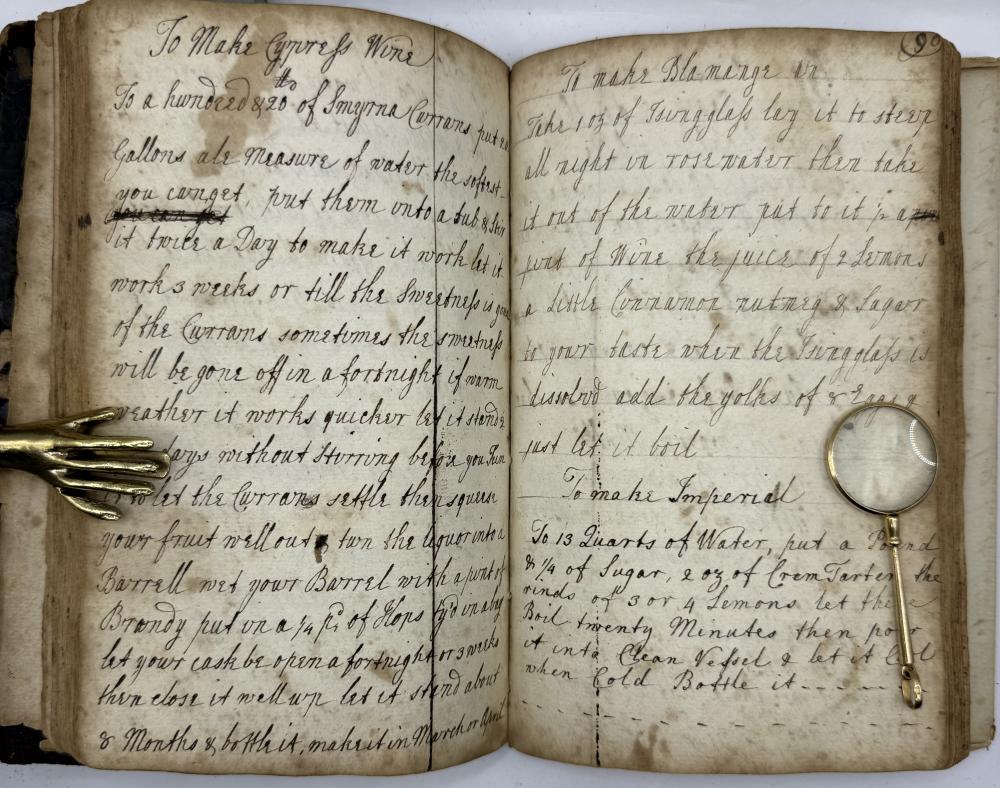 To Make Cypress Wine
To a hundred & 20 th of Smyrna Currans put 20
Gallons ale Measure of water the softest
you canget, put them into a tub & Stir
you can get
it twice a Day to make it work let it
work 3 weeks or till the Sweetness is gone
of the Currans sometimes the sweetness
will be gone off in a fortnight if warm
weather it works quicker let it stand
days without Stirring before you Tun
let the Currans settle then squeese
your fruit well out & tun the liquor into a
Barrell wet your Barrel with a pint of
Brandy put in a 1/4 pd of Hops ty'd in a bag
let your cask be open a fortnight or 3 weeks
then close it well up let it stand about
8 Months & bottle it, make it in March or April
90
To make Blamange an
Take 1 oz of Isingglass lay it to steep
all night in rosewater then take
it out of the water put to it a
pint of Wine the juice of 2 Lemons
a little Cinnamon nutmeg & Sugar
to your taste when the Isingglass is
dissolvd add the yolks of 8 Eggs
just let it boil
To make Imperial
To 13 Quarts of Water, put a Pound
& 1/4 of Sugar, 2 oz of Crem Tarter the
rinds of 3 or 4 Lemons let these
Boil twenty Minutes then pour
it into Clean Vessel & let it Cool
when Cold Bottle it